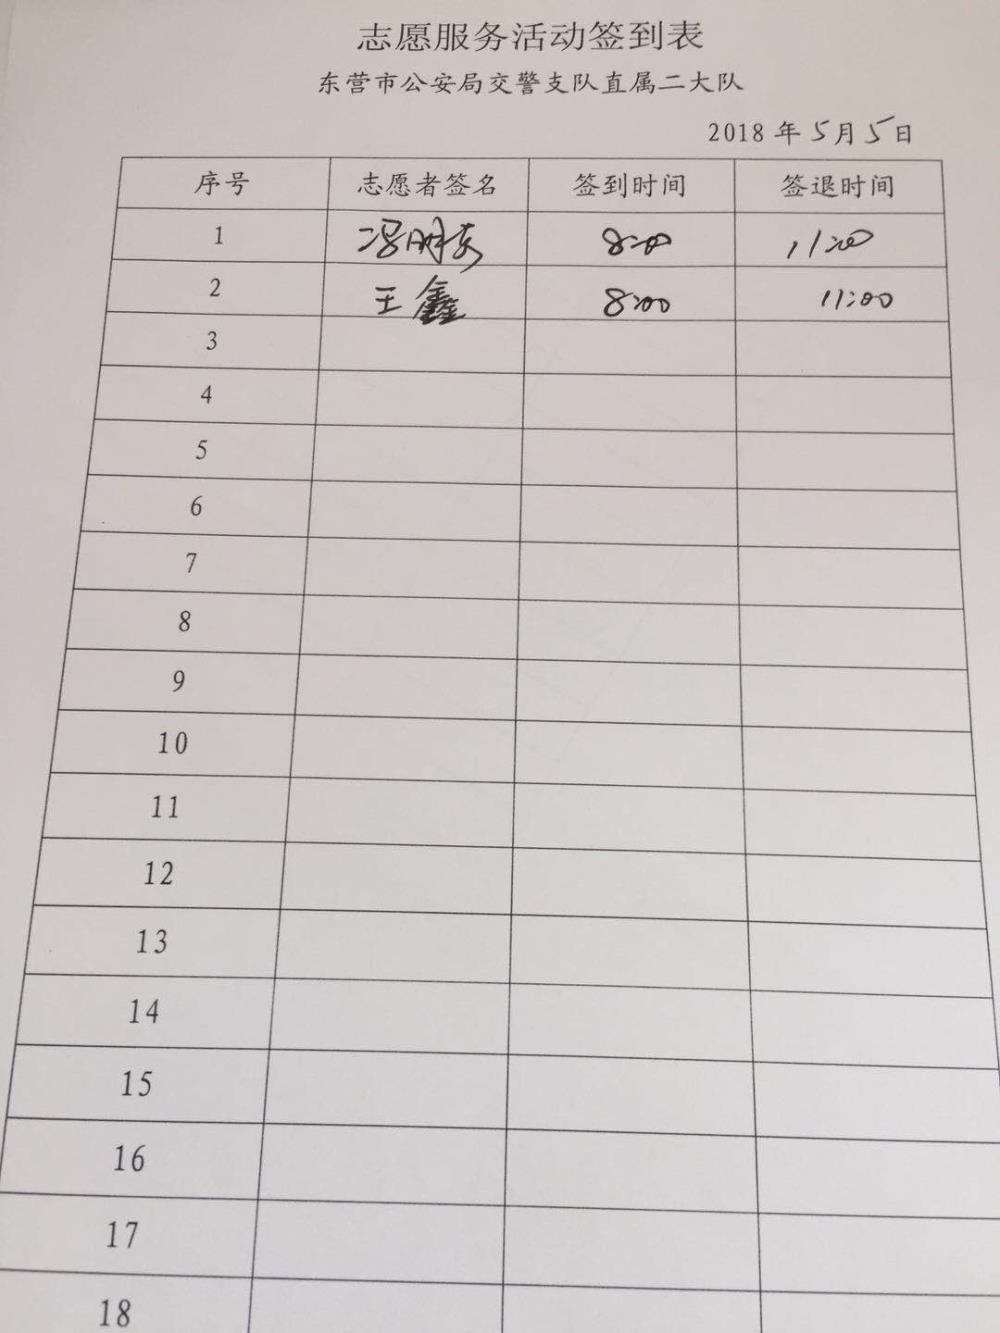 志愿服务活动签到表
东营市公安局交警支队直属二大队
2018 年 5 月 5 日
序号 志愿者签名 签到时间 签退时间
1 冯明东 8:00 11:00
2 王鑫 8:00 11:00
3
4
5
6
7
8
9
10
11
12
13
14
15
16
17
18